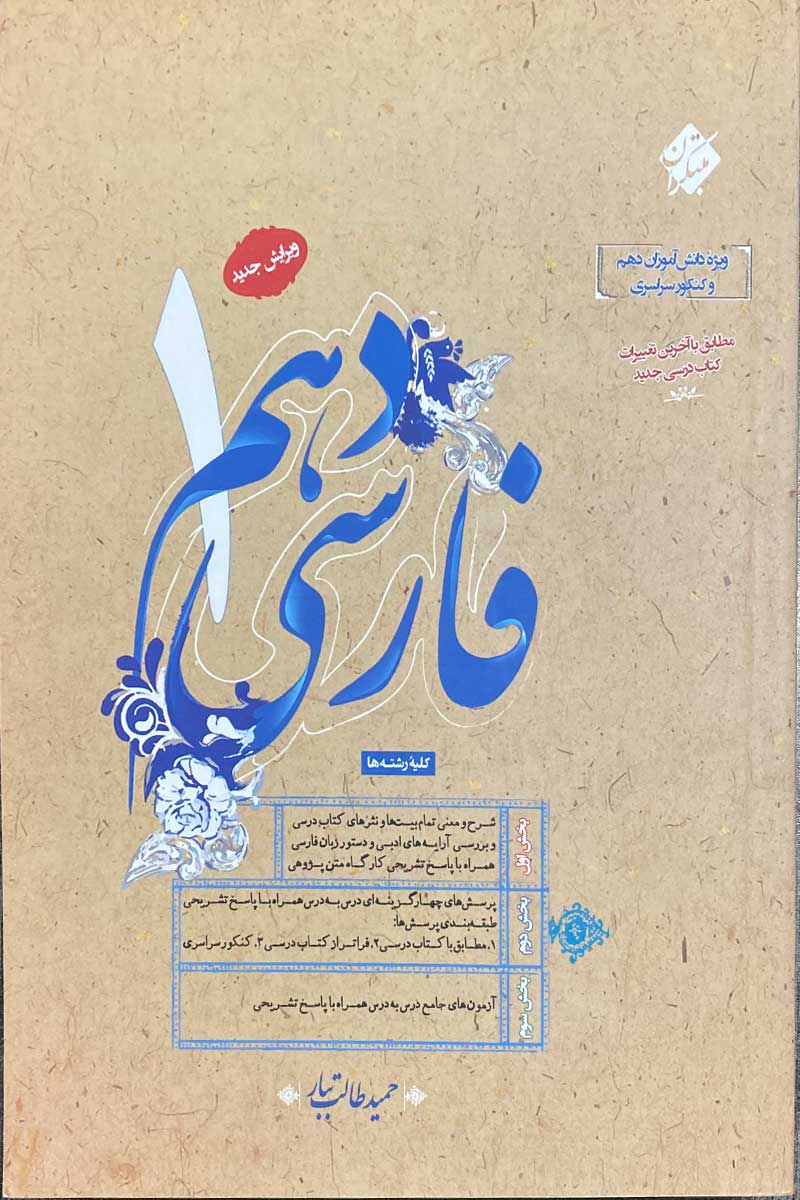 مبتکران
ویژه دانش‌آموزان دهم
و کنکور سراسری
مطابق با آخرین تغییرات
کتاب درسی جدید
ویرایش جدید
فارسی
دهم
۱
کلیهٔ رشته‌ها
بخش اول
شرح و معنی تمام بیت‌ها و نثرهای کتاب درسی
و بررسی آرایه‌های ادبی و دستور زبان فارسی
همراه با پاسخ تشریحی کارگاه متن‌پژوهی
بخش دوم
پرسش‌های چهارگزینه‌ای درس به درس همراه با پاسخ تشریحی
طبقه‌بندی پرسش‌ها:
۱. مطابق با کتاب درسی ۲. فراتر از کتاب درسی ۳. کنکور سراسری
بخش سوم
آزمون‌های جامع درس به درس همراه با پاسخ تشریحی
حمید طالب‌تبار